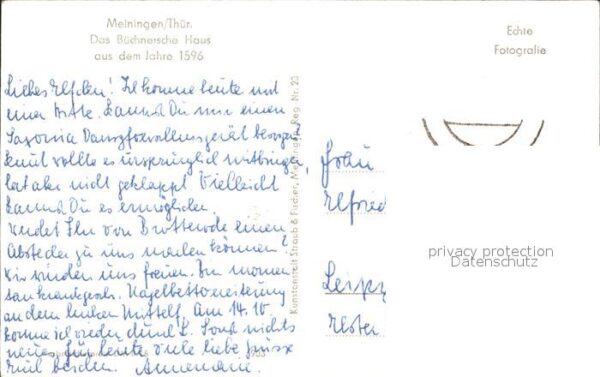 Meiningen/Thür.
Das Büchnersche Haus
aus dem Jahre 1596
Echte
Fotografie
Liebes Elfchen! Ich komme heute mit
einer Bitte. Kannst Du mir einen
Saxonia
Knut wollte es ursprünglich mitbringen,
hat aber nicht geklappt. Vielleicht
kannst Du es ermöglichen.
Werdet Ihr von Brotterode einen
Abstecher zu uns machen können?
Wir würden uns freuen. Im Momen
Nagelbettvereiterung
an dem linken Mittelf. Am 14.10
komme ich wieder Sonst nichts
neues. Für heute viele liebe Grüsse
Euch beiden. Annemarie.
Kunstanstalt Straub & Fischer, Meiningen, Reg. Nr. 23
Frau
Elfried
Leipz
privacy protection
Datenschutz